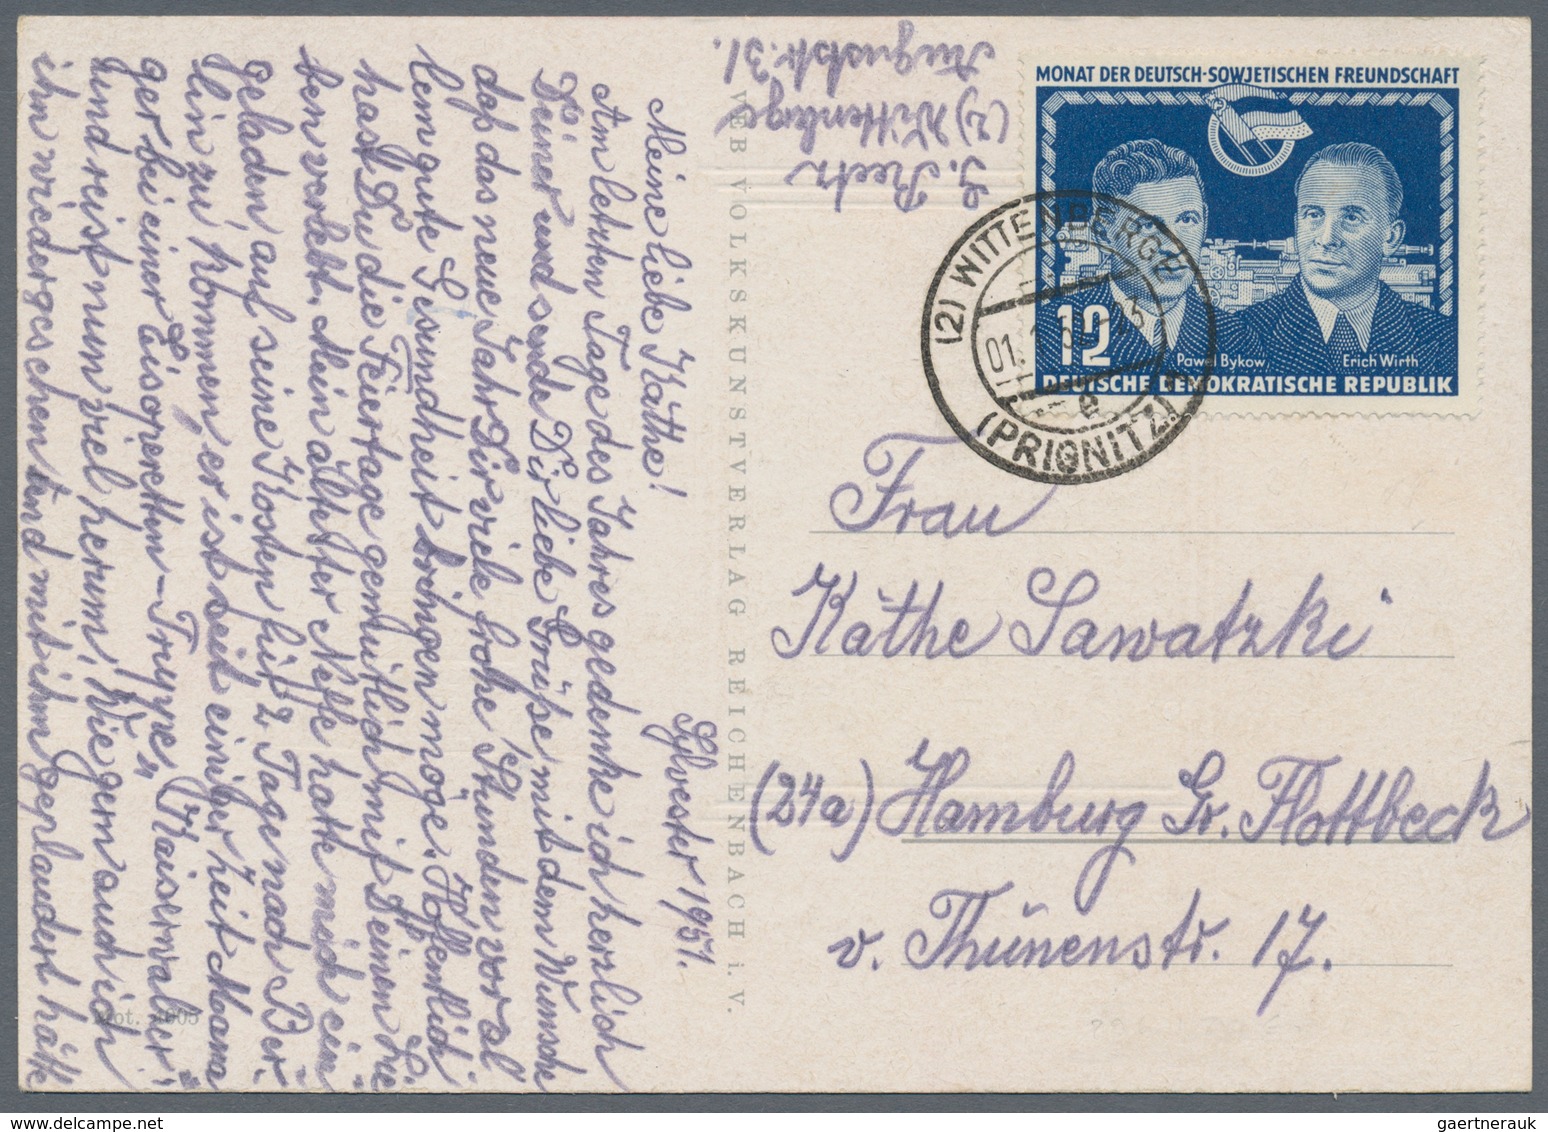 Meine liebe Käthe!
Sylvester 1951.
Am letzten Tage des Jahres gedenke ich herzlich
Deiner und sende Dir liebe Grüße mit dem Wunsche
daß das neue Jahr Dir viele frohe Stunden vor al
lem gute Gesundheit bringen möge. Hoffentlich
hast Du die Feiertage gemütlich mit Deinen Lie
ben verlebt. Mein ältester Neffe hatte mich ein
geladen, auf seine Kosten für 2 Tage nach Ber-
lin zu kommen, er ist seit einiger Zeit Mana
ger bei einer Eisoperetten-Truppe „Kaiserwalzer"
und reist nun viel herum, wie gern auch ich
ihn wiedergesehen und mit ihm geplaudert hätte
Mot. 4605
VEB VOLKSKUNSTVERLAG REICHENBACH i. V.
(2) Wittenberge
Auguststr. 31.
MONAT DER DEUTSCH-SOWJETISCHEN FREUNDSCHAFT
12
Pawel Bykow
Erich Wirth
DEUTSCHE DEMOKRATISCHE REPUBLIK
(2) WITTENBERGE
01.
e
(PRIGNITZ)
Frau
Käthe Sawatzki
(24a) Hamburg Gr. Flottbeck
v. Thünenstr. 17.
gaertnerauk / www.delcampe.net